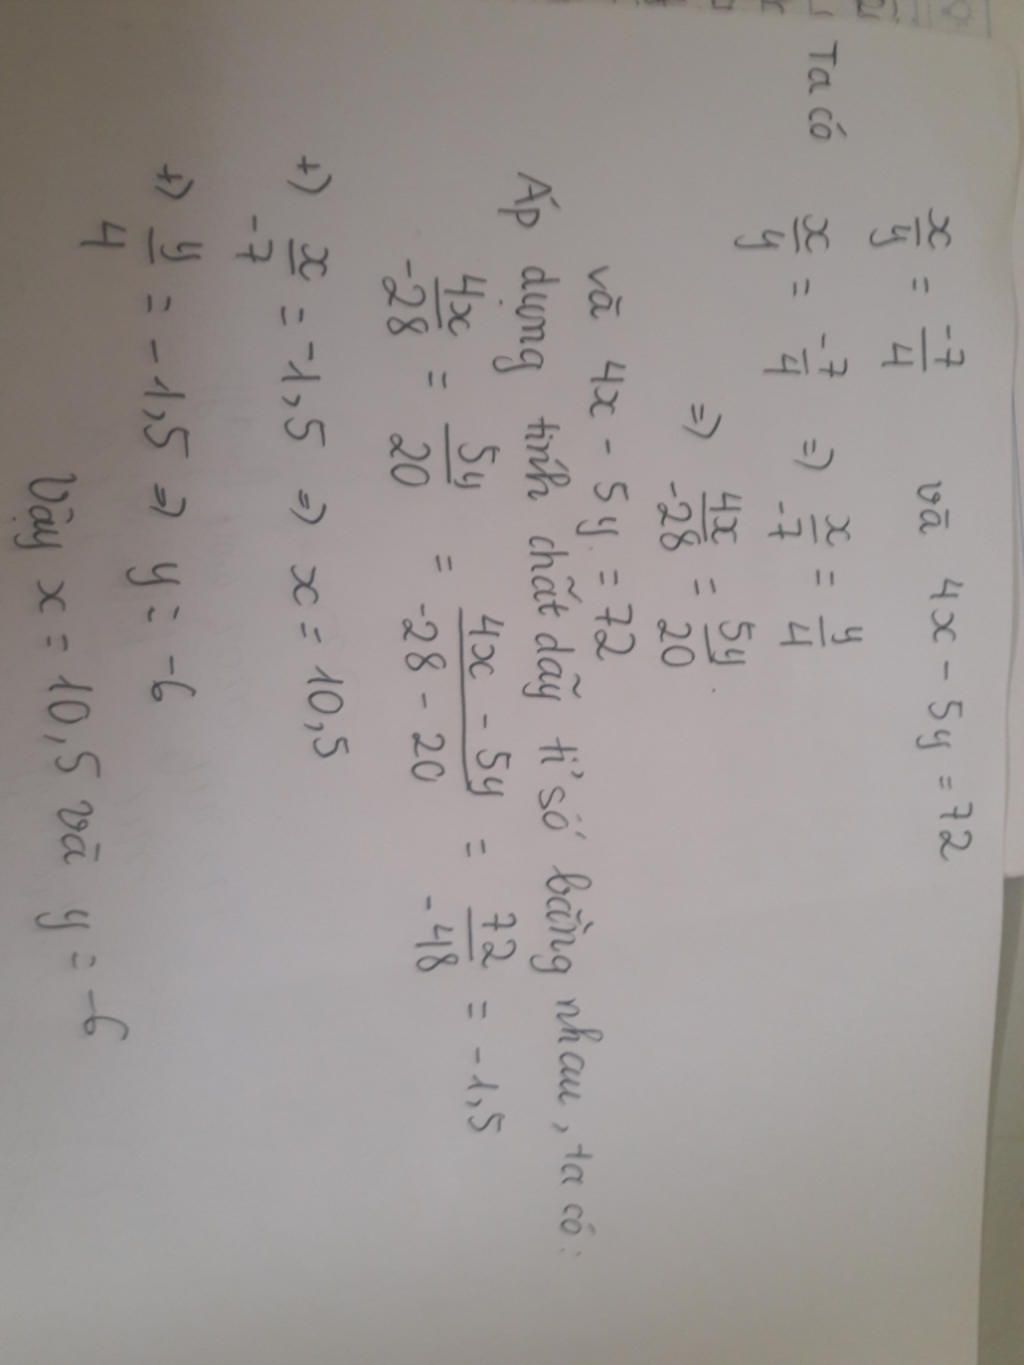 x/y = -7/4 và 4x - 5y = 72
Ta có x/y = -7/4 => x/-7 = y/4
=> 4x/-28 = 5y/20
và 4x - 5y = 72
Áp dụng tính chất dãy tỉ số bằng nhau, ta có:
4x/-28 = 5y/20 = 4x - 5y/-28 - 20 = 72/-48 = -1,5
+) x/-7 = -1,5 => x = 10,5
+) y/4 = -1,5 => y = -6
Vậy x = 10,5 và y = -6